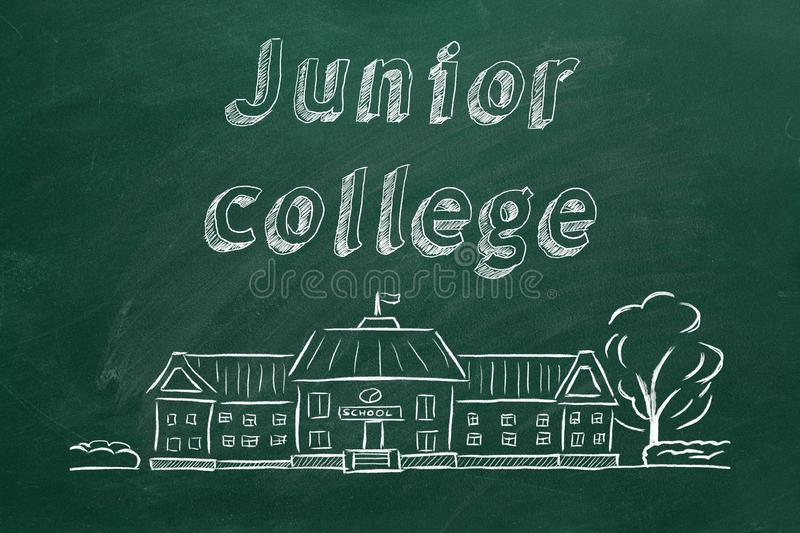 Junior
college
dreamstime
SCHOOL